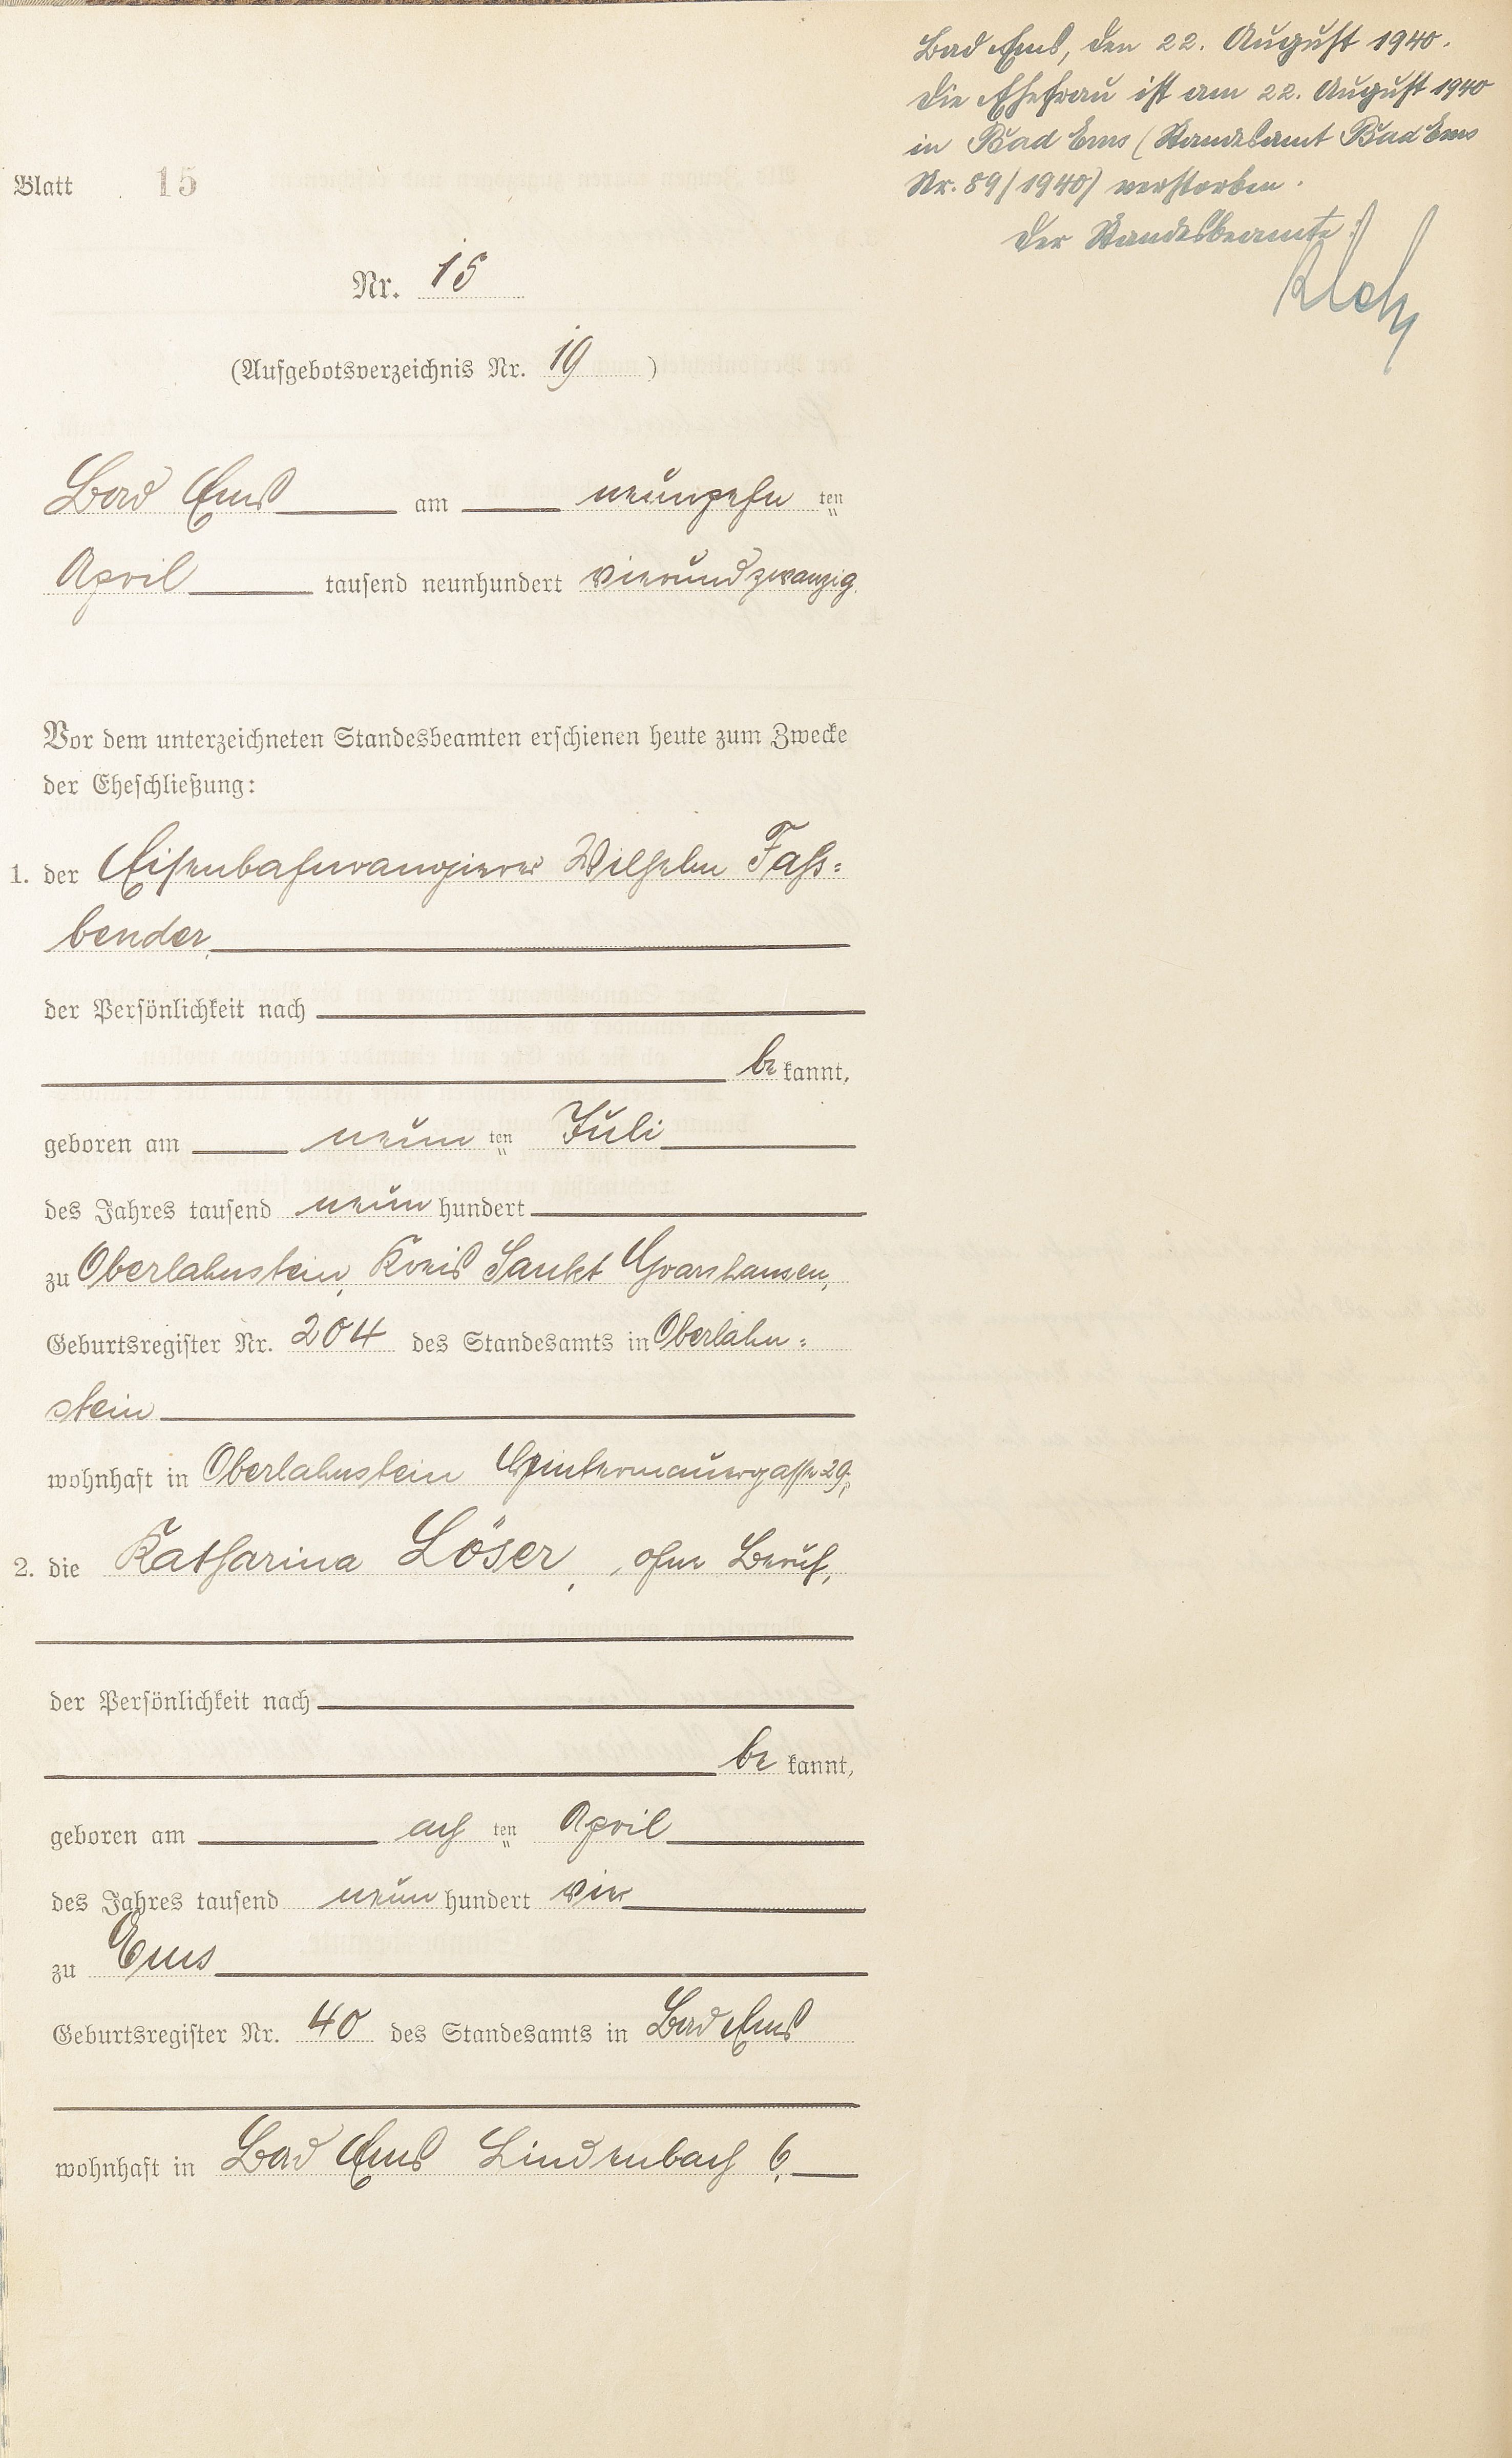 Blatt 15
Nr. 15
(Aufgebotsverzeichnis Nr. 19)
Bad Ems am neunzehn ten
April tausend neunhundert vierundzwanzig.
Vor dem unterzeichneten Standesbeamten erschienen heute zum Zwecke
der Eheschließung:
1. der Eisenbahnrangierer Wilhelm Faß=
bender,
der Persönlichkeit nach
be kannt,
geboren am neun ten Juli
des Jahres tausend neun hundert
zu Oberlahnstein, Kreis Sankt Goarshausen,
Geburtsregister Nr. 204 des Standesamts in Oberlahn=
stein
wohnhaft in Oberlahnstein Hintermauergasse 29,
2. die Katharina Löser, ohne Beruf,
der Persönlichkeit nach
be kannt,
geboren am ach ten April
des Jahres tausend neun hundert vier
zu Ems
Geburtsregister Nr. 40 des Standesamts in Bad Ems
wohnhaft in Bad Ems Lindenbach 6.
Bad Ems, den 22. August 1940.
Die Ehefrau ist am 22. August 1940
in Bad Ems (Standesamt Bad Ems
Nr. 89/1940) verstorben.
Der Standesbeamte: